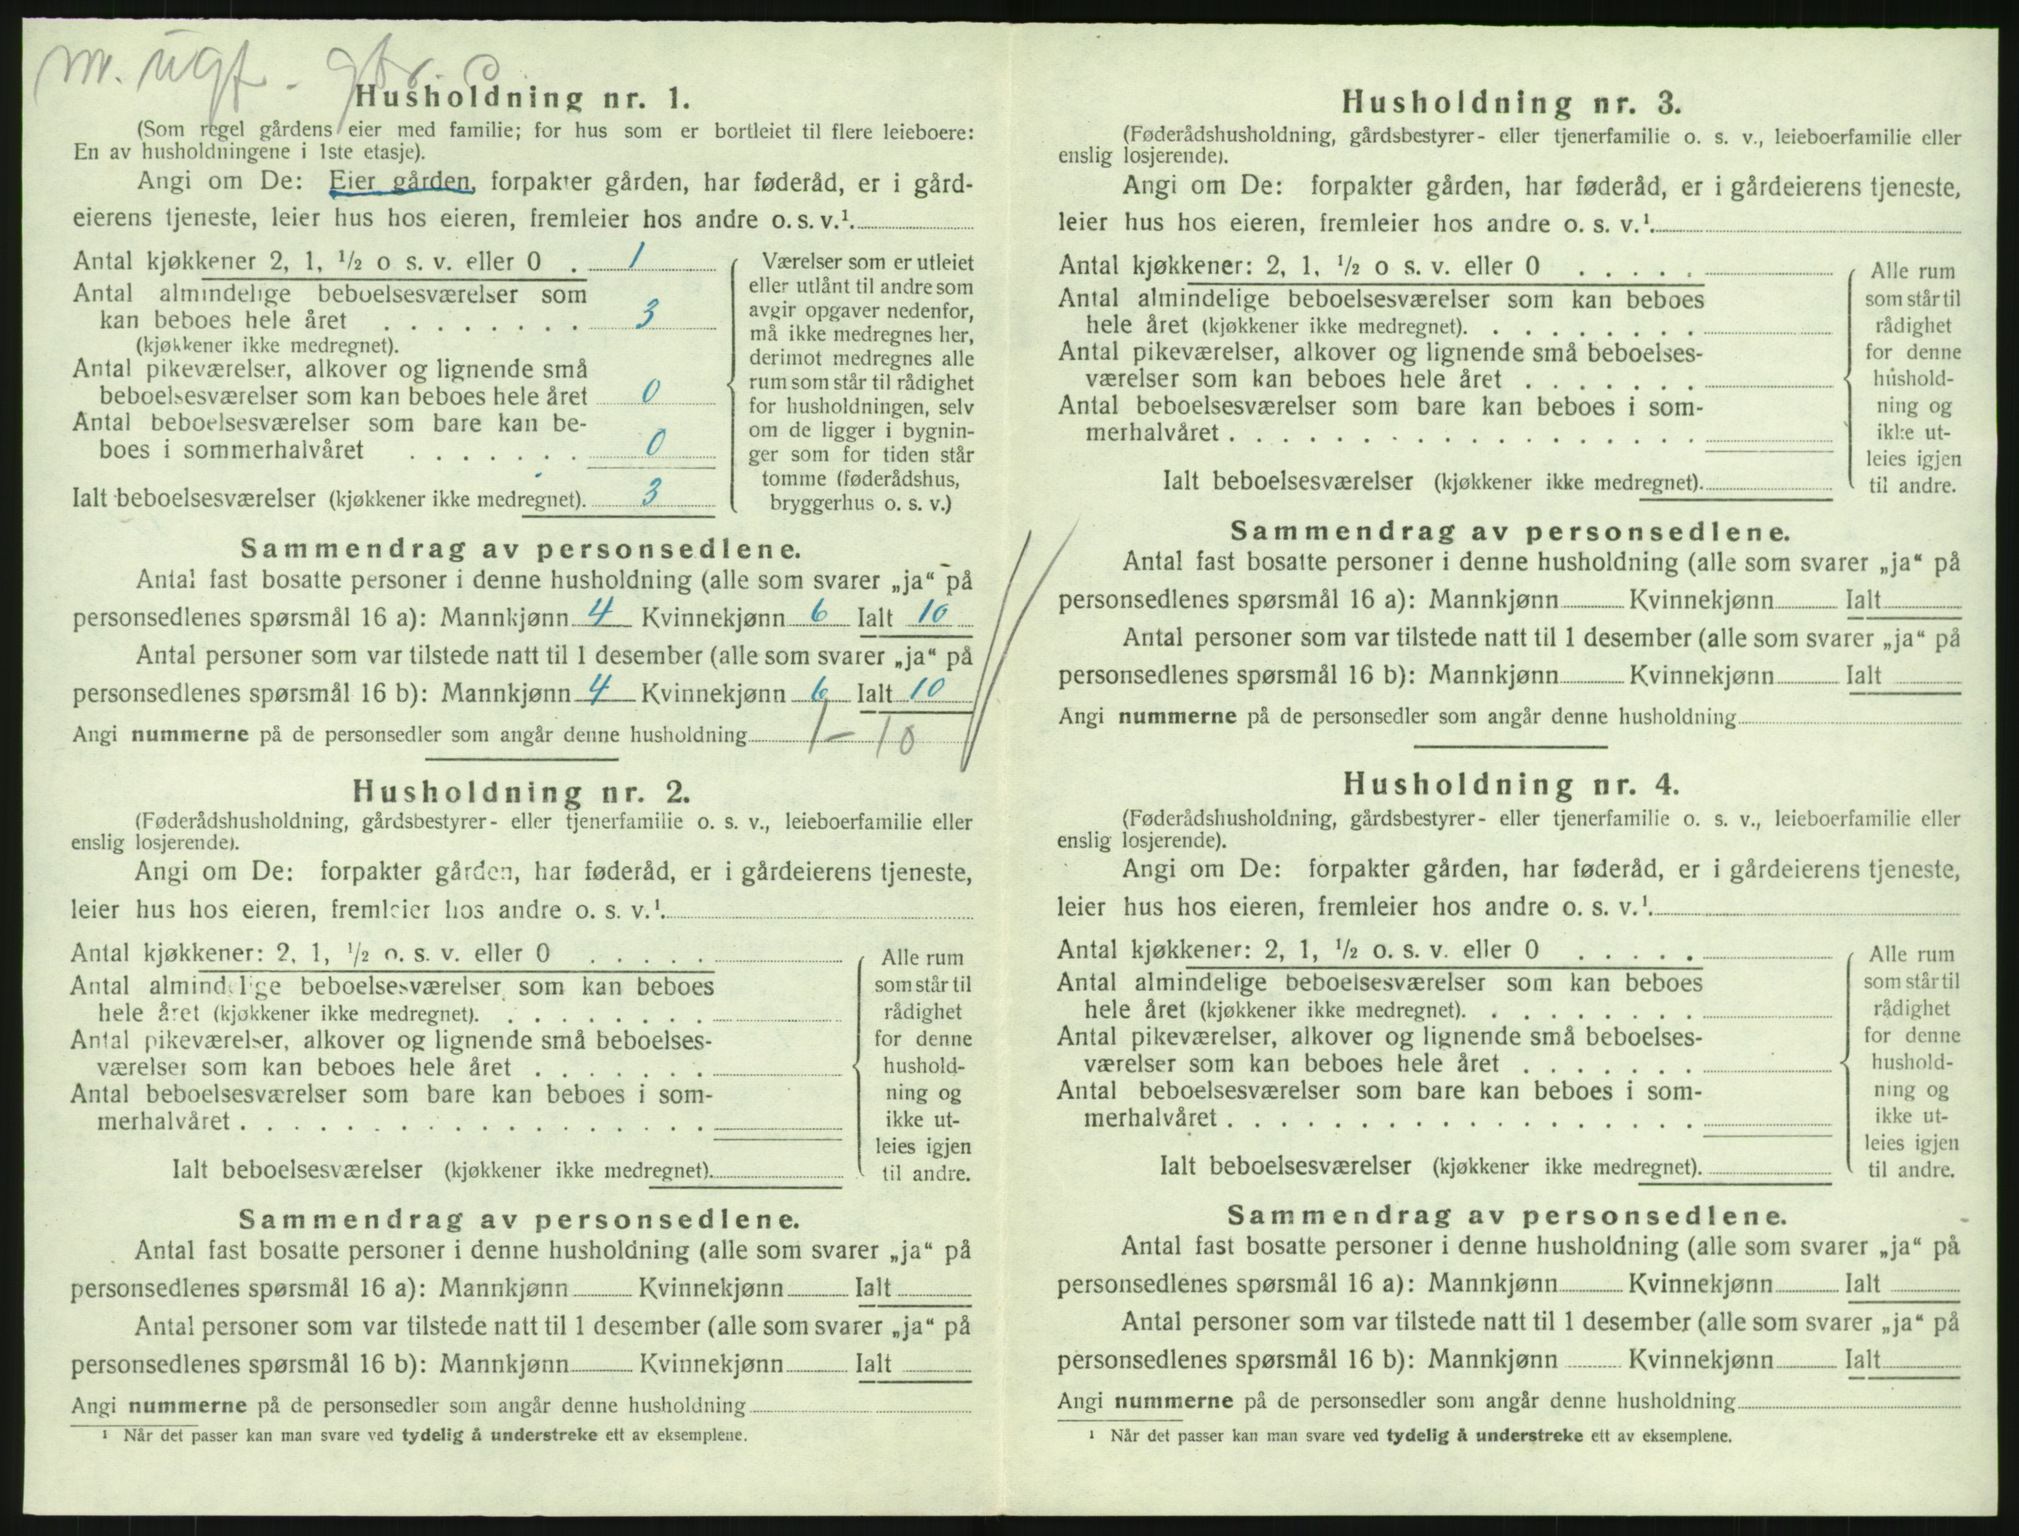 m. ugf. - gbr.
Husholdning nr. 1.
(Som regel gårdens eier med familie; for hus som er bortleiet til flere leieboere:
En av husholdningene i 1ste etasje).
Angi om De: Eier gården, forpakter gården, har føderåd, er i gård-
eierens tjeneste, leier hus hos eieren, fremleier hos andre o. s. v.¹
Antal kjøkkener 2, 1, ½ o s. v. eller 0 . 1
Antal almindelige beboelsesværelser som
kan beboes hele året . . . . . . . . 3
(kjøkkener ikke medregnet).
Antal pikeværelser, alkover og lignende små
beboelsesværelser som kan beboes hele året 0
Antal beboelsesværelser som bare kan be-
boes i sommerhalvåret . . . . . . . 0
Ialt beboelsesværelser (kjøkkener ikke medregnet). 3
Værelser som er utleiet
eller utlånt til andre som
avgir opgaver nedenfor,
må ikke medregnes her,
derimot medregnes alle
rum som står til rådighet
for husholdningen, selv
om de ligger i bygnin-
ger som for tiden står
tomme (føderådshus,
bryggerhus o. s. v.)
Sammendrag av personsedlene.
Antal fast bosatte personer i denne husholdning (alle som svarer „ja“ på
personsedlenes spørsmål 16 a): Mannkjønn 4 Kvinnekjønn 6 Ialt 10
Antal personer som var tilstede natt til 1 desember (alle som svarer „ja“ på
personsedlenes spørsmål 16 b): Mannkjønn 4 Kvinnekjønn 6 Ialt 10
Angi nummerne på de personsedler som angår denne husholdning 1 - 10
Husholdning nr. 2.
(Føderådshusholdning, gårdsbestyrer- eller tjenerfamilie o. s. v., leieboerfamilie eller
enslig losjerende).
Angi om De: forpakter gården, har føderåd, er i gårdeierens tjeneste,
leier hus hos eieren, fremleier hos andre o. s. v.¹
Antal kjøkkener: 2, 1, ½ o. s. v. eller 0 . . . . .
Antal almindelige beboelsesværelser som kan beboes
hele året (kjøkkener ikke medregnet). . . . . . . . .
Antal pikeværelser, alkover og lignende små beboelses-
værelser som kan beboes hele året . . . . . . .
Antal beboelsesværelser som bare kan beboes i som-
merhalvåret . . . . . . . . . . . . . . . . . .
Ialt beboelsesværelser (kjøkkener ikke medregnet).
Alle rum
som står til
rådighet
for denne
hushold-
ning og
ikke ut-
leies igjen
til andre.
Sammendrag av personsedlene.
Antal fast bosatte personer i denne husholdning (alle som svarer „ja“ på
personsedlenes spørsmål 16 a): Mannkjønn Kvinnekjønn Ialt
Antal personer som var tilstede natt til 1 desember (alle som svarer „ja“ på
personsedlenes spørsmål 16 b): Mannkjønn Kvinnekjønn Ialt
Angi nummerne på de personsedler som angår denne husholdning
¹ Når det passer kan man svare ved tydelig å understreke ett av eksemplene.
Husholdning nr. 3.
(Føderådshusholdning, gårdsbestyrer- eller tjenerfamilie o. s. v., leieboerfamilie eller
enslig losjerende).
Angi om De: forpakter gården, har føderåd, er i gårdeierens tjeneste,
leier hus hos eieren, fremleier hos andre o. s. v.¹
Antal kjøkkener: 2, 1, ½ o s. v. eller 0 . . . . .
Antal almindelige beboelsesværelser som kan beboes
hele året (kjøkkener ikke medregnet). . . . . . . . .
Antal pikeværelser, alkover og lignende små beboelses-
værelser som kan beboes hele året . . . . . . .
Antal beboelsesværelser som bare kan beboes i som-
merhalvåret . . . . . . . . . . . . . . . . . .
Ialt beboelsesværelser (kjøkkener ikke medregnet).
Alle rum
som står til
rådighet
for denne
hushold-
ning og
ikke ut-
leies igjen
til andre.
Sammendrag av personsedlene.
Antal fast bosatte personer i denne husholdning (alle som svarer „ja“ på
personsedlenes spørsmål 16 a): Mannkjønn Kvinnekjønn Ialt
Antal personer som var tilstede natt til 1 desember (alle som svarer „ja“ på
personsedlenes spørsmål 16 b): Mannkjønn Kvinnekjønn Ialt
Angi nummerne på de personsedler som angår denne husholdning
Husholdning nr. 4.
(Føderådshusholdning, gårdsbestyrer- eller tjenerfamilie o. s. v., leieboerfamilie eller
enslig losjerende).
Angi om De: forpakter gården, har føderåd, er i gårdeierens tjeneste,
leier hus hos eieren, fremleier hos andre o. s. v.¹
Antal kjøkkener: 2, 1, ½ o. s. v. eller 0 . . . . .
Antal almindelige beboelsesværelser som kan beboes
hele året (kjøkkener ikke medregnet). . . . . . . . .
Antal pikeværelser, alkover og lignende små beboelses-
værelser som kan beboes hele året . . . . . . .
Antal beboelsesværelser som bare kan beboes i som-
merhalvåret . . . . . . . . . . . . . . . . . .
Ialt beboelsesværelser (kjøkkener ikke medregnet).
Alle rum
som står til
rådighet
for denne
hushold-
ning og
ikke ut-
leies igjen
til andre.
Sammendrag av personsedlene.
Antal fast bosatte personer i denne husholdning (alle som svarer „ja“ på
personsedlenes spørsmål 16 a): Mannkjønn Kvinnekjønn Ialt
Antal personer som var tilstede natt til 1 desember (alle som svarer „ja“ på
personsedlenes spørsmål 16 b): Mannkjønn Kvinnekjønn Ialt
Angi nummerne på de personsedler som angår denne husholdning
¹ Når det passer kan man svare ved tydelig å understreke ett av eksemplene.